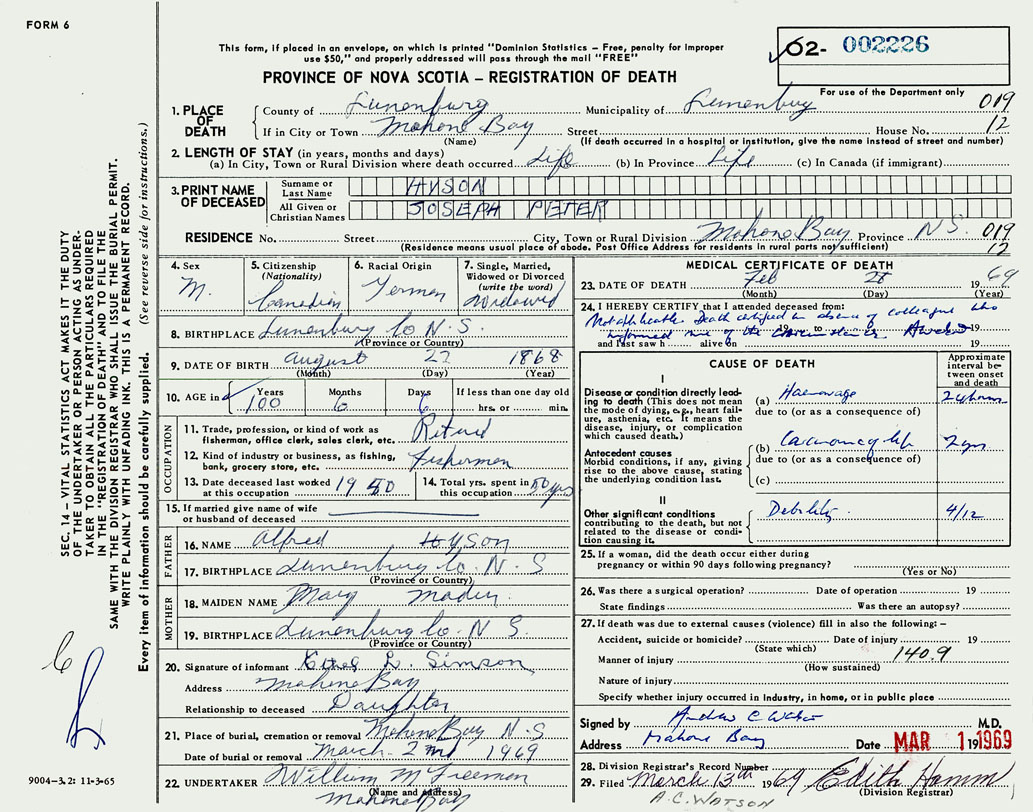 FORM 6
This form, if placed in an envelope, on which is printed "Dominion Statistics – Free, penalty for improper
use $50," and properly addressed will pass through the mail "FREE"
PROVINCE OF NOVA SCOTIA – REGISTRATION OF DEATH
02- 002226
For use of the Department only
1. PLACE OF DEATH
County of Lunenburg Municipality of Lunenburg 019
If in City or Town Mahone Bay Street House No. 12
(Name) (If death occurred in a hospital or institution, give the name instead of street and number)
2. LENGTH OF STAY (in years, months and days)
(a) In City, Town or Rural Division where death occurred Life (b) In Province Life (c) In Canada (if immigrant)
3. PRINT NAME OF DECEASED
Surname or Last Name HYSON
All Given or Christian Names JOSEPH PETER
RESIDENCE No. Street City, Town or Rural Division Mahone Bay Province N.S. 019
(Residence means usual place of abode. Post Office Address for residents in rural parts not sufficient) 12
4. Sex
M.
5. Citizenship (Nationality)
Canadian
6. Racial Origin
German
7. Single, Married, Widowed or Divorced (write the word)
Widowed
8. BIRTHPLACE Lunenburg Co N.S.
(Province or Country)
9. DATE OF BIRTH August 22 1868
(Month) (Day) (Year)
10. AGE in Years Months Days If less than one day
100 6 6 hrs. or min.
OCCUPATION
11. Trade, profession, or kind of work as
fisherman, office clerk, sales clerk, etc. Retired
12. Kind of industry or business, as fishing,
bank, grocery store, etc. fisherman
13. Date deceased last worked at this occupation 1950
14. Total yrs. spent in this occupation 50 yrs
15. If married give name of wife
or husband of deceased
FATHER
16. NAME Alfred Hyson
17. BIRTHPLACE Lunenburg Co. N S
(Province or Country)
MOTHER
18. MAIDEN NAME Mary Mader
19. BIRTHPLACE Lunenburg Co. N S.
(Province or Country)
20. Signature of informant L. Simson
Address Mahone Bay
Relationship to deceased Daughter
21. Place of burial, cremation or removal Mahone Bay N.S
Date of burial or removal March 2nd 1969
22. UNDERTAKER William M Freeman
(Name and address)
Mahone Bay
MEDICAL CERTIFICATE OF DEATH
23. DATE OF DEATH Feb 28 1969
(Month) (Day) (Year)
24. I HEREBY CERTIFY that I attended deceased from:
Not applicable. Death certified in absence of colleague who
informed me of the
19 to 19
and last saw h alive on 19
CAUSE OF DEATH
Approximate interval between onset and death
I
Disease or condition directly leading to death (This does not mean the mode of dying, e.g., heart failure, asthenia, etc. It means the disease, injury, or complication which caused death.)
(a) Haemorrhage 24 hours
due to (or as a consequence of)
Antecedent causes
Morbid conditions, if any, giving rise to the above cause, stating the underlying condition last.
(b) Carcinoma of lip 2 yrs
due to (or as a consequence of)
(c)
II
Other significant conditions
contributing to the death, but not related to the disease or condition causing it.
Debility. 4/12
25. If a woman, did the death occur either during
pregnancy or within 90 days following pregnancy?
(Yes or No)
26. Was there a surgical operation? Date of operation 19
State findings Was there an autopsy?
27. If death was due to external causes (violence) fill in also the following: –
Accident, suicide or homicide? Date of injury 19
(State which) 140.9
Manner of injury
(How sustained)
Nature of injury
Specify whether injury occurred in industry, in home, or in public place
Signed by Andrew C Watson M.D.
Address Mahone Bay Date MAR 1 1969 19
28. Division Registrar's Record Number
29. Filed March 13th 1969 Edith Hamm
(Division Registrar)
A.C. WATSON
SEC. 14 – VITAL STATISTICS ACT MAKES IT THE DUTY
OF THE UNDERTAKER OR PERSON ACTING AS UNDER-
TAKER TO OBTAIN ALL THE PARTICULARS REQUIRED
IN THE "REGISTRATION OF DEATH" AND TO FILE THE
SAME WITH THE DIVISION REGISTRAR WHO SHALL ISSUE THE BURIAL PERMIT.
WRITE PLAINLY WITH UNFADING INK. THIS IS A PERMANENT RECORD.
Every item of information should be carefully supplied. (See reverse side for instructions.)
6
9004–3.2: 11-3-65